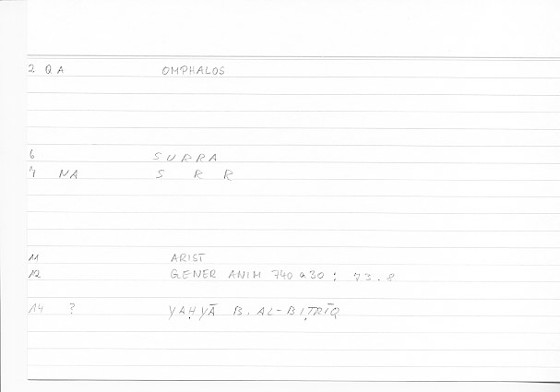 2 QA OMPHALOS
6 SURRA
7 NA S R R
11 ARIST
12 GENER ANIM 740 a 30 ; 73.8
14 ? YAḤYĀ B. AL-BIṬRĪQ